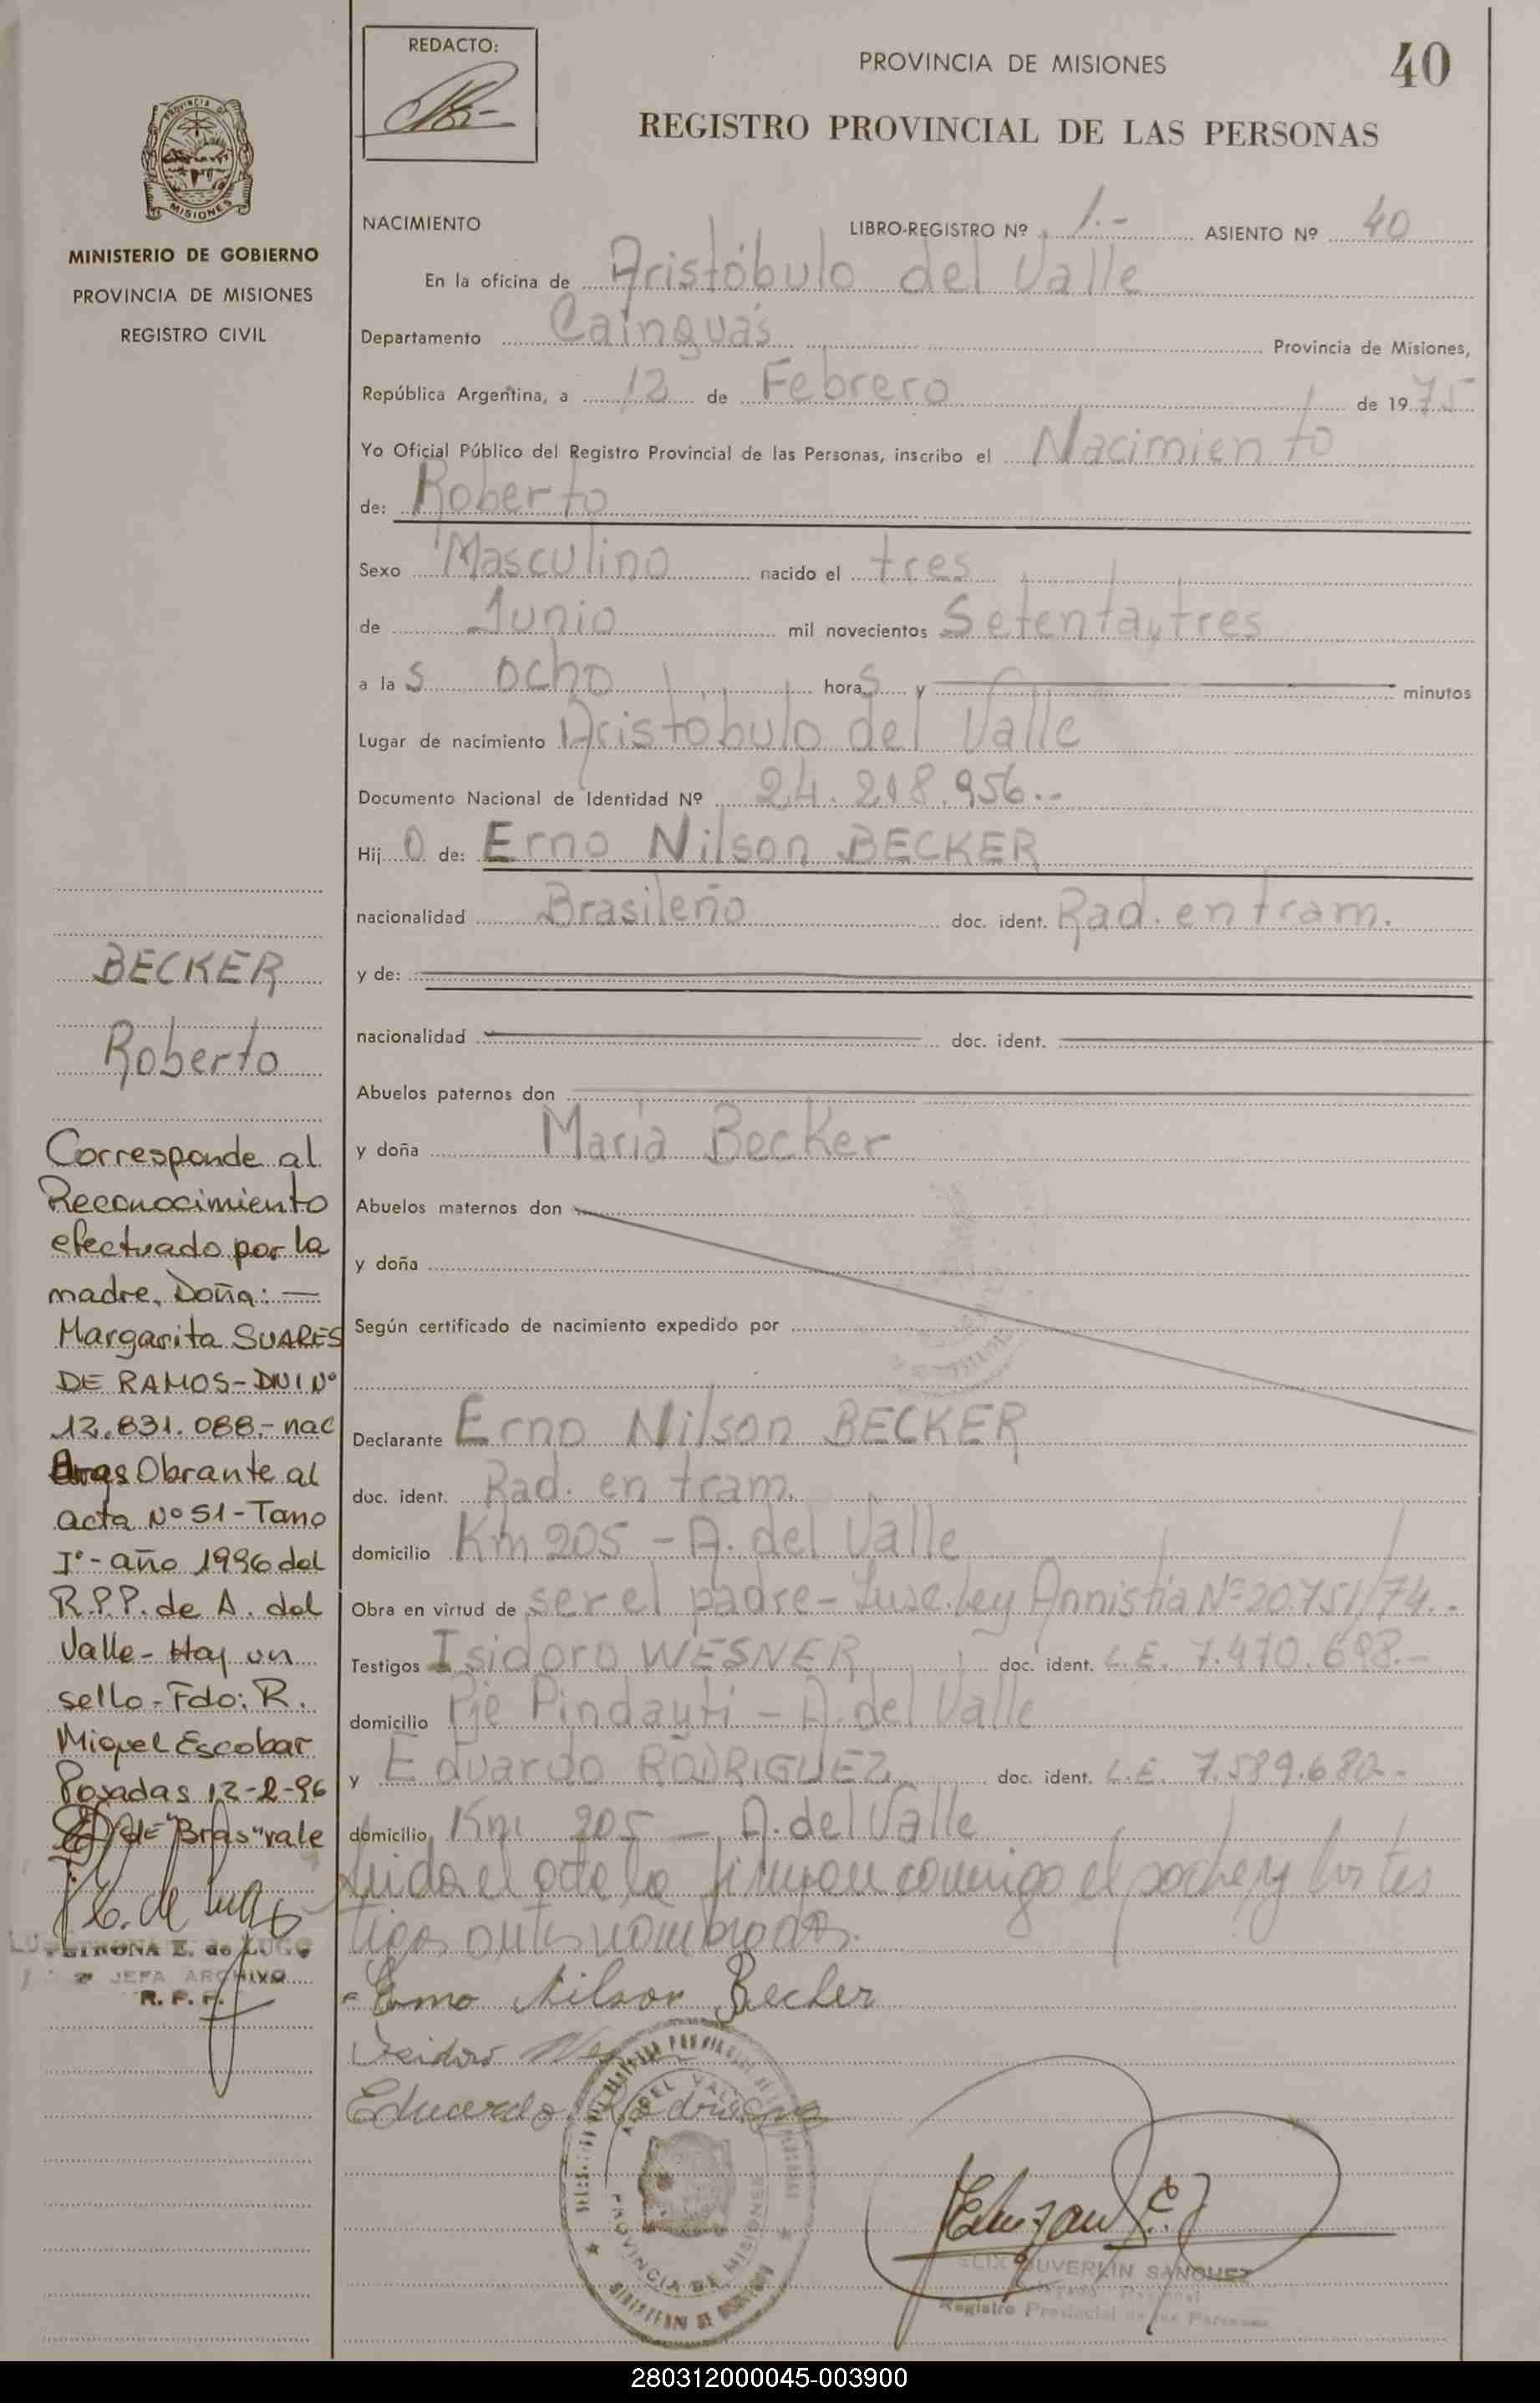 REDACTO:
PROVINCIA DE MISIONES
40
REGISTRO PROVINCIAL DE LAS PERSONAS
MISIONES
MINISTERIO DE GOBIERNO
PROVINCIA DE MISIONES
REGISTRO CIVIL
NACIMIENTO LIBRO-REGISTRO Nº 1.- ASIENTO Nº 40
En la oficina de Aristóbulo del Valle
Departamento Cainguás Provincia de Misiones,
República Argentina, a 12 de Febrero de 1975
Yo Oficial Público del Registro Provincial de las Personas, inscribo el Nacimiento
de: Roberto
Sexo Masculino nacido el tres
de Junio mil novecientos Setentaytres
a las ocho horas y minutos
Lugar de nacimiento Aristóbulo del Valle
Documento Nacional de Identidad Nº 24.218.956.-
Hijo de: Erno Nilson BECKER
nacionalidad Brasileño doc. ident. Rad. en tram.
y de:
nacionalidad doc. ident.
Abuelos paternos don
y doña María Becker
Abuelos maternos don
y doña
Según certificado de nacimiento expedido por
Declarante Erno Nilson BECKER
doc. ident. Rad. en tram.
domicilio Km 205 - A. del Valle
Obra en virtud de ser el padre - ley Annistia Nº 20.751/74.-
Testigos Isidoro WESNER doc. ident. L.E. 7.470.698.-
domicilio Pje Pindayti - A. del Valle
y Eduardo RODRIGUEZ doc. ident. L.E. 7.589.682.-
domicilio Km 205 - A. del Valle
Leida el acta la firman conmigo el padre y los tes
tigos antes nombrados.
Erno Nilson Becker
Isidoro
Eduardo Rodriguez
BECKER
Roberto
Corresponde al
Reconocimiento
efectuado por la
madre, Doña: —
Margarita SUARES
DE RAMOS-DNI Nº
12.831.088.- nac
Obrante al
acta Nº 51 - Tomo
Iº - año 1996 del
R.P.P. de A. del
Valle - Hay un
sello - Fdo: R.
Miguel Escobar
Posadas 12-2-96
"Bras" vale
E. de LUGO
JEFA ARCHIVO
R. P. P.
A. DEL VALLE
PROVINCIA DE MISIONES
MINISTERIO DE GOBIERNO
DUVERLIN SANCHEZ
Registro Provincial de las Personas
280312000045-003900